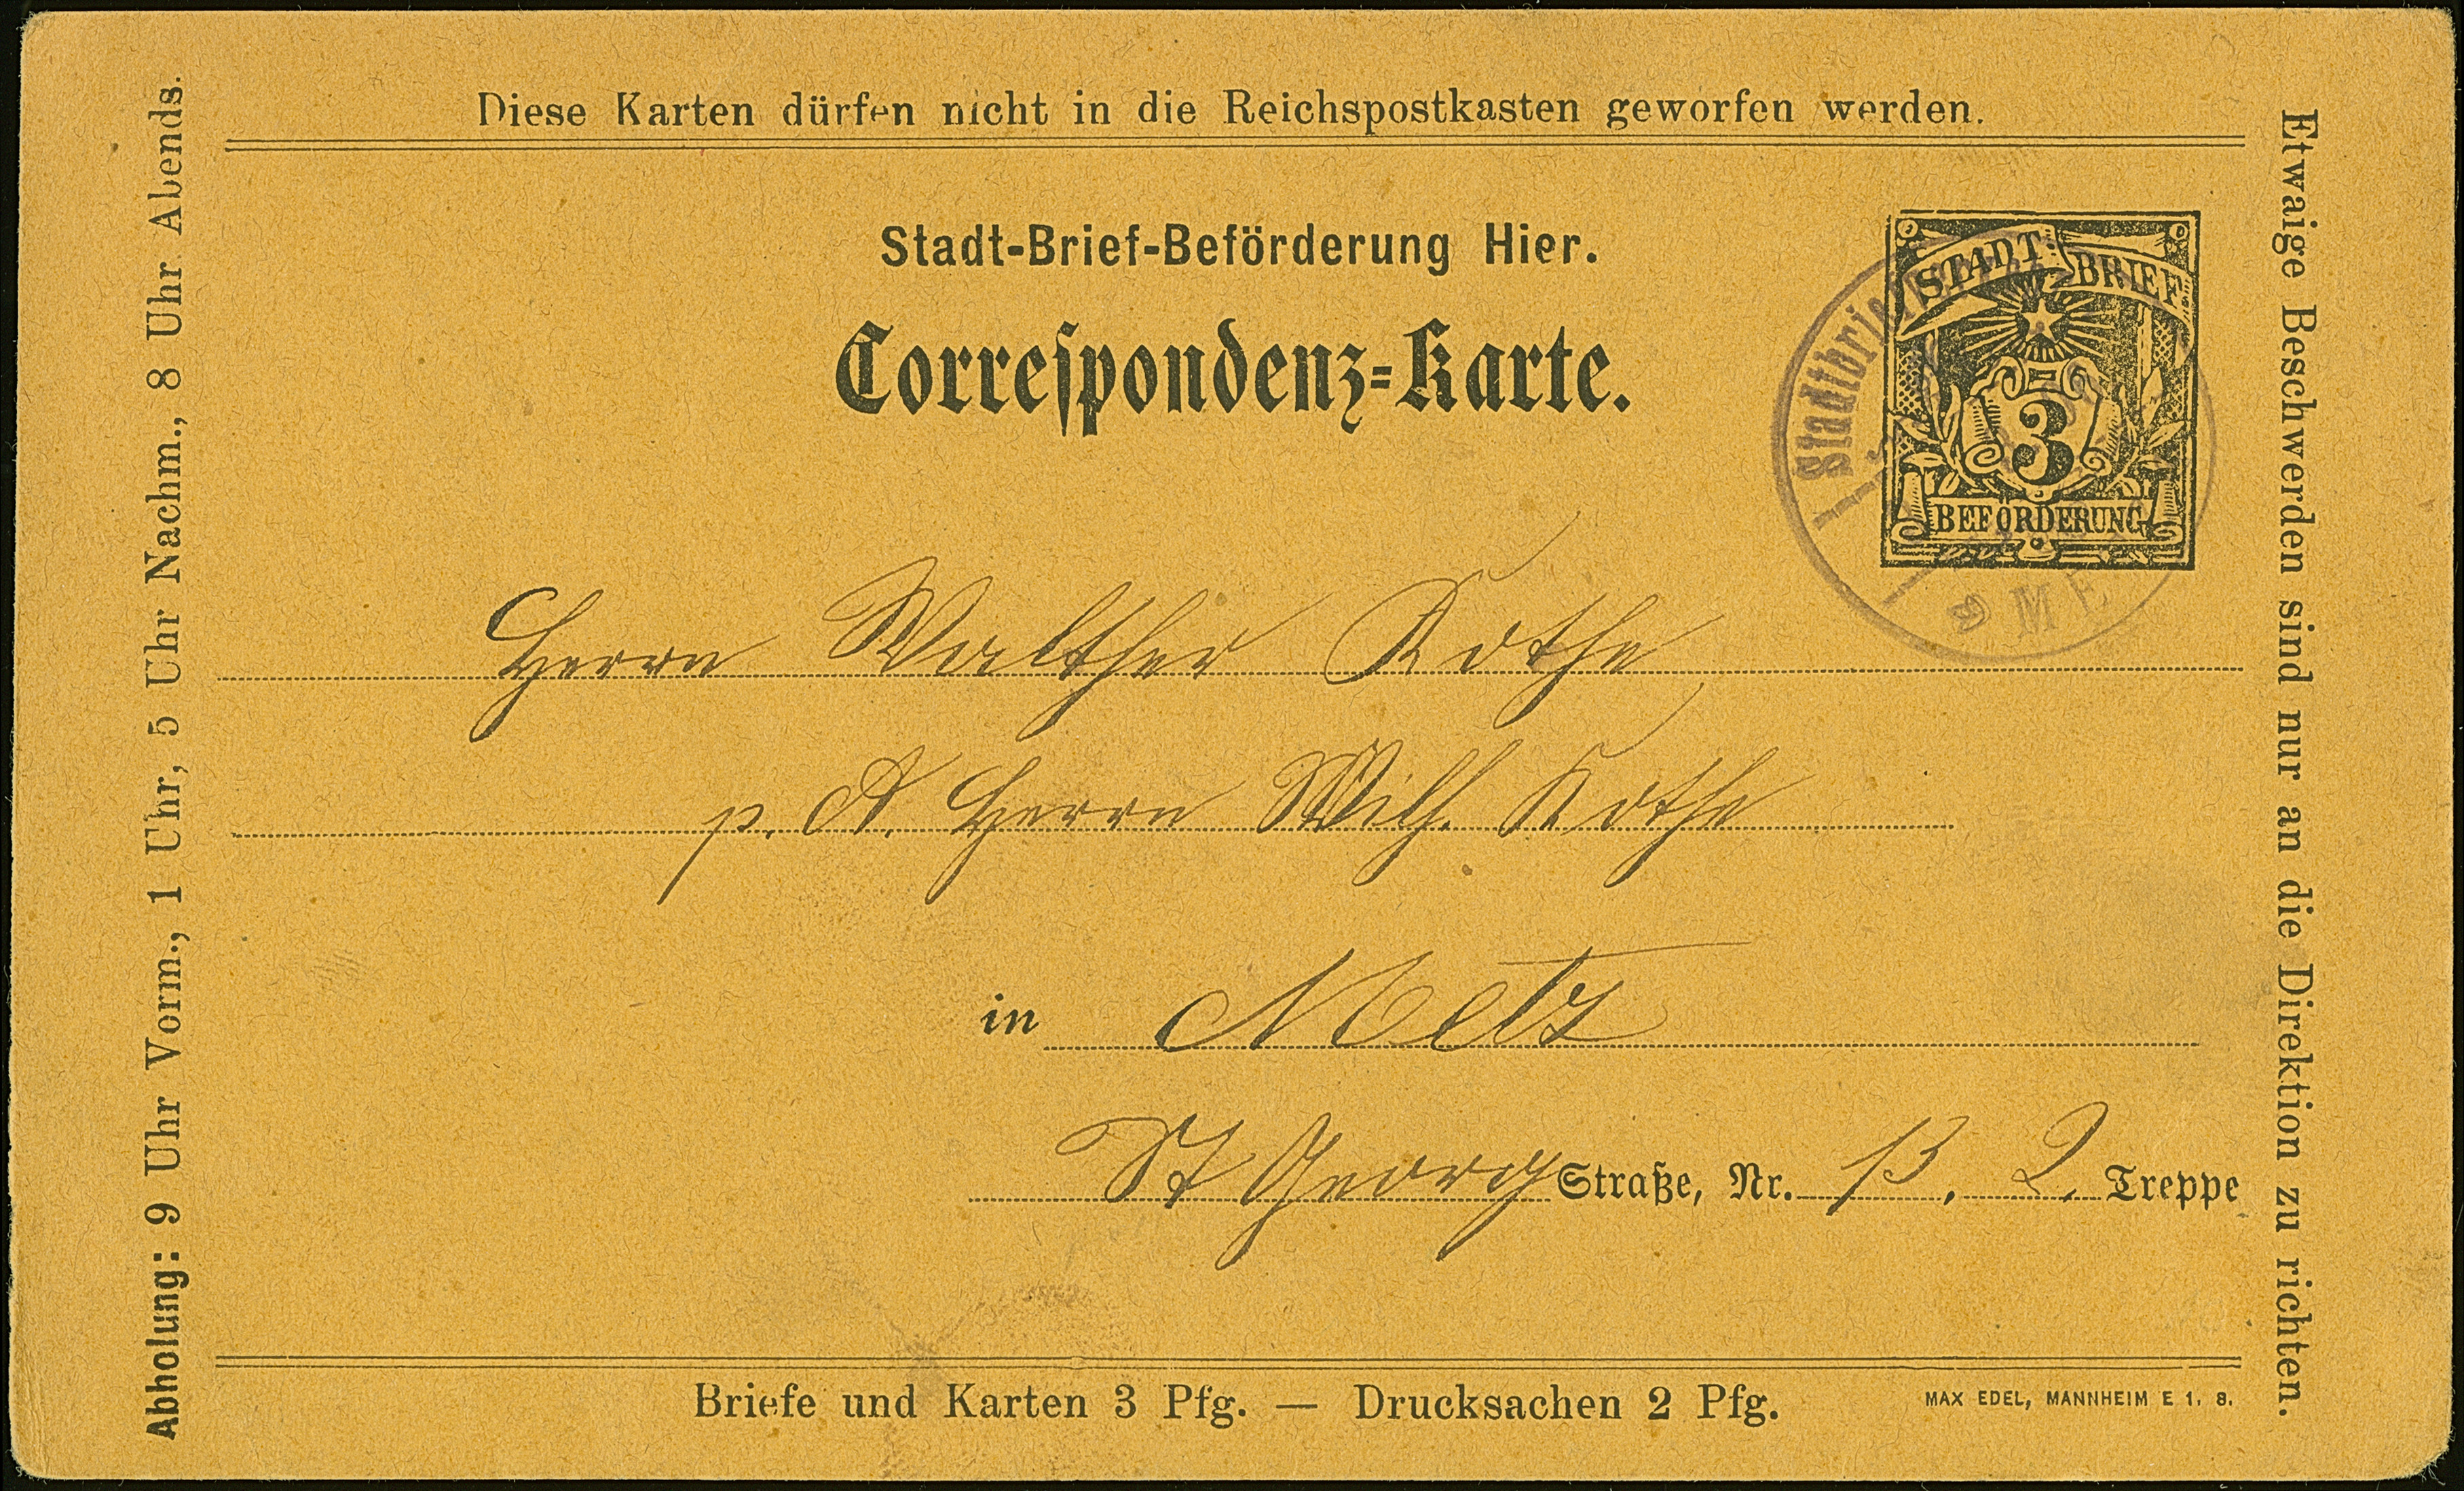 Diese Karten dürfen nicht in die Reichspostkasten geworfen werden.
Abholung: 9 Uhr Vorm., 1 Uhr, 5 Uhr Nachm., 8 Uhr Abends.
Stadt-Brief-Beförderung Hier.
Correſpondenz=Karte.
STADT- BRIEF
3
BEFÖRDERUNG
Stadtbrief
Herrn Walther Kothe
p. A. Herrn Wilh. Kothe
in Metz
St Georg Straße, Nr. 13, 2. Treppe
Etwaige Beschwerden sind nur an die Direktion zu richten.
Briefe und Karten 3 Pfg. — Drucksachen 2 Pfg.
MAX EDEL, MANNHEIM E 1, 8.